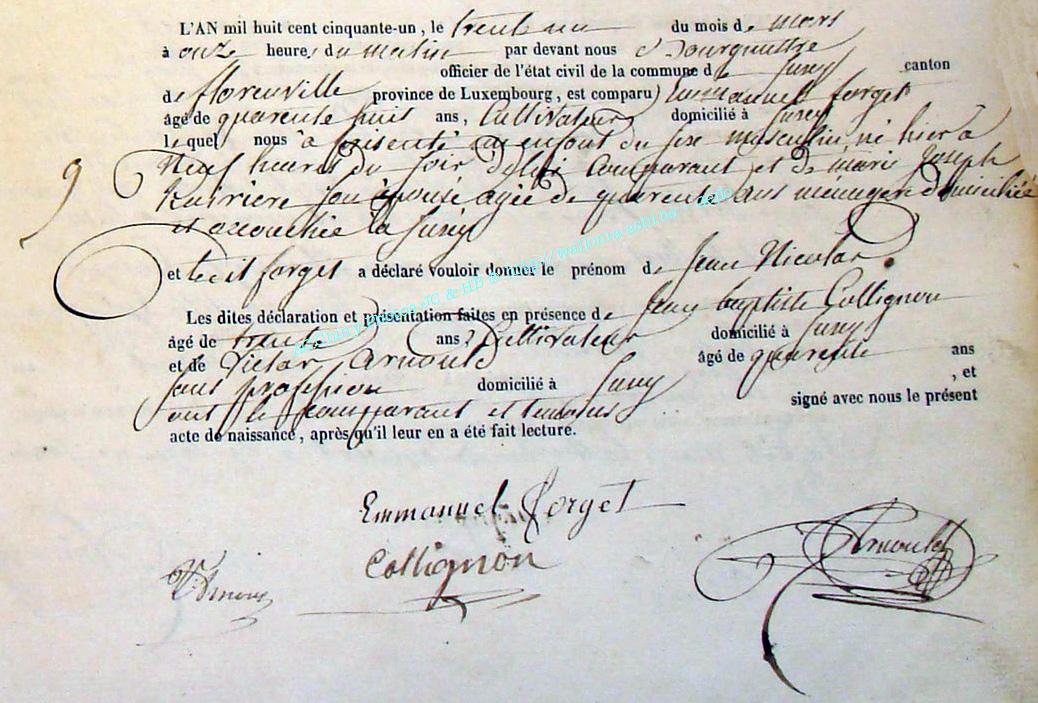 L'AN mil huit cent cinquante-un, le trente un du mois de mars
à onze heures du matin par devant nous
officier de l'état civil de la commune de Suxy canton
de florenville province de Luxembourg, est comparu Emmanuel forget
âgé de quarente huit ans, Cultivateur domicilié à Suxy
lequel nous a présenté un enfant du sexe masculin, né hier à
9 Neuf heures du soir de lui Comparant et de marie Joseph
son épouse agée de quarente ans menagere domiciliée
et accouchée à Suxy
et ledit forget a déclaré vouloir donner le prénom de Jean Nicolas
Les dites déclaration et présentation faites en présence de Jean baptiste Collignon
âgé de trente ans, Cultivateur domicilié à Suxy
et de Victor Arnould âgé de quarente ans
sans profession domicilié à Suxy , et
ont le comparant et temoins signé avec nous le présent
acte de naissance, après qu'il leur en a été fait lecture.
Emmanuel Forget
Collignon
Arnould